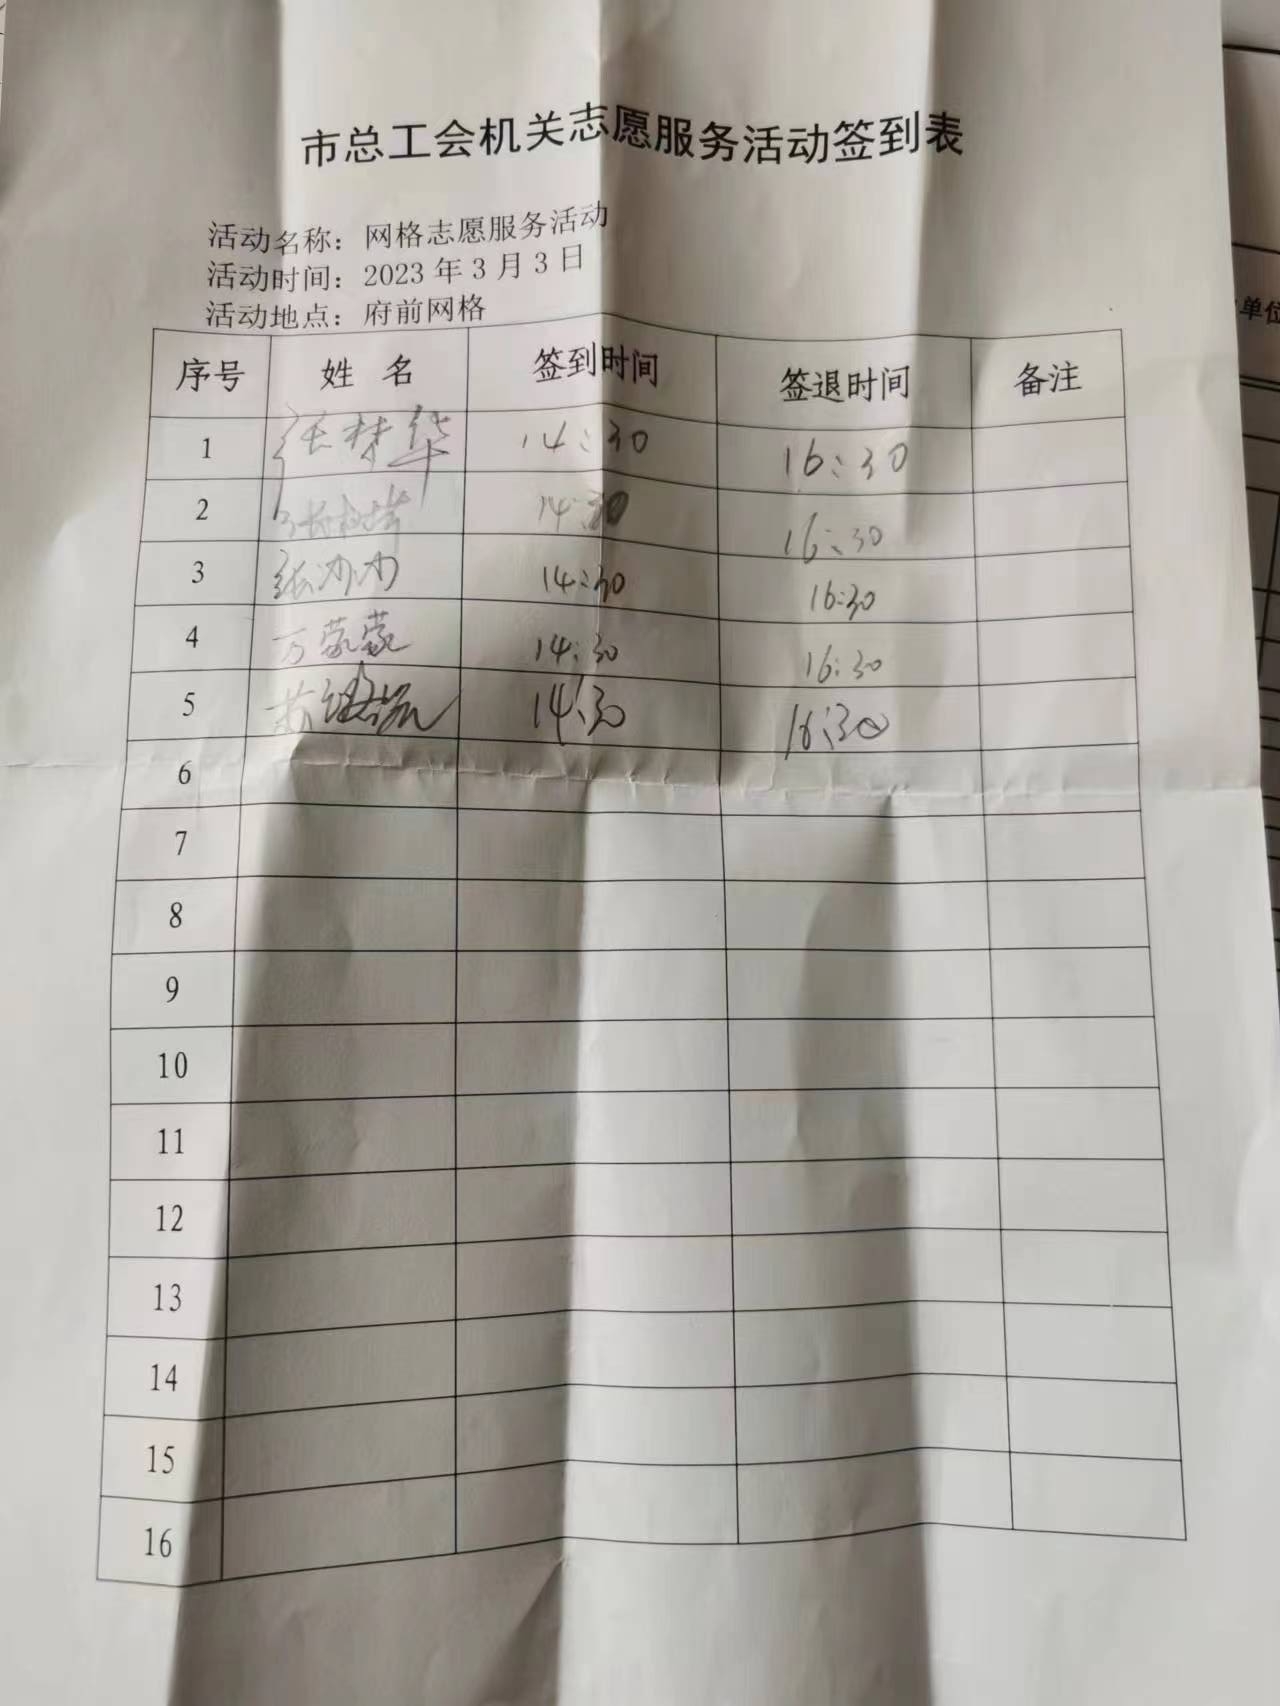 市总工会机关志愿服务活动签到表
活动名称：网格志愿服务活动
活动时间：2023年3月3日
活动地点：府前网格
序号 姓名 签到时间 签退时间 备注
1 张梦华 14:30 16:30
2 14:30 16:30
3 张沙沙 14:30 16:30
4 万蒙蒙 14:30 16:30
5 14:30 16:30
6
7
8
9
10
11
12
13
14
15
16
单位